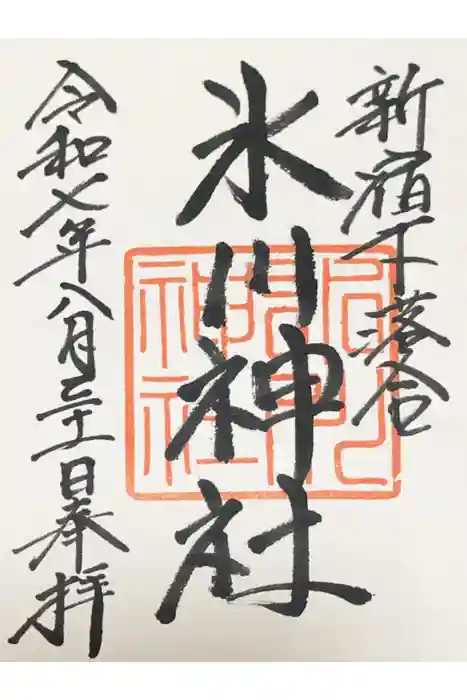 新宿下落合
氷川神社
令和七年八月二十一日奉拝